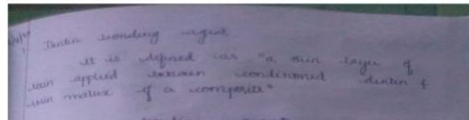 Dentin bonding agent
It is defined as "a thin layer of
resin applied between conditioned dentin &
resin matrix of a composite"